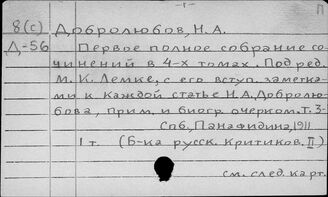 -1-
П
8(с) Добролюбов, Н.А.
Д-56 Первое полное собрание со-
чинений в 4-х томах. Под ред.
М.К. Лемке, с его вступ. заметка-
ми к каждой статье Н.А. Добролю-
бова, прим. и биогр. очерком. Т. 3-
Спб., Панафидина, 1911
1 т. (Б-ка русск. критиков. II)
см. след. карт.